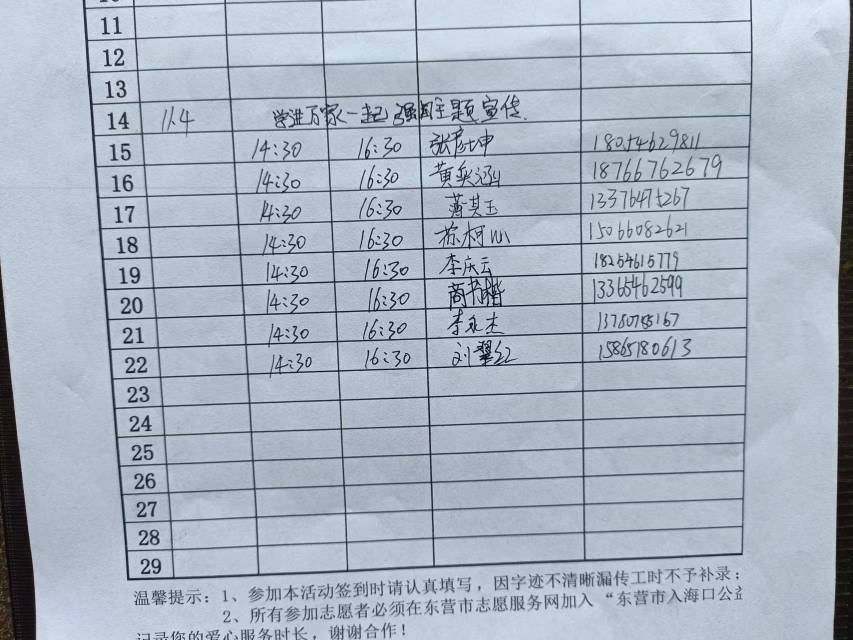 11
12
13
14 11.4 学进万家一起 强国主题宣传.
15 14:30 16:30 张彦坤 18054629811
16 14:30 16:30 黄奕涵 18766762679
17 14:30 16:30 薄其玉 13376475267
18 14:30 16:30 柯心 15066082621
19 14:30 16:30 李庆云 18254615779
20 14:30 16:30 商书楷 13365462599
21 14:30 16:30 李永杰
22 14:30 16:30 刘翠红 15865180613
23
24
25
26
27
28
29
温馨提示：1、参加本活动签到时请认真填写，因字迹不清晰漏传工时不予补录；
2、所有参加志愿者必须在东营市志愿服务网加入“东营市入海口公益
记录您的爱心服务时长，谢谢合作！